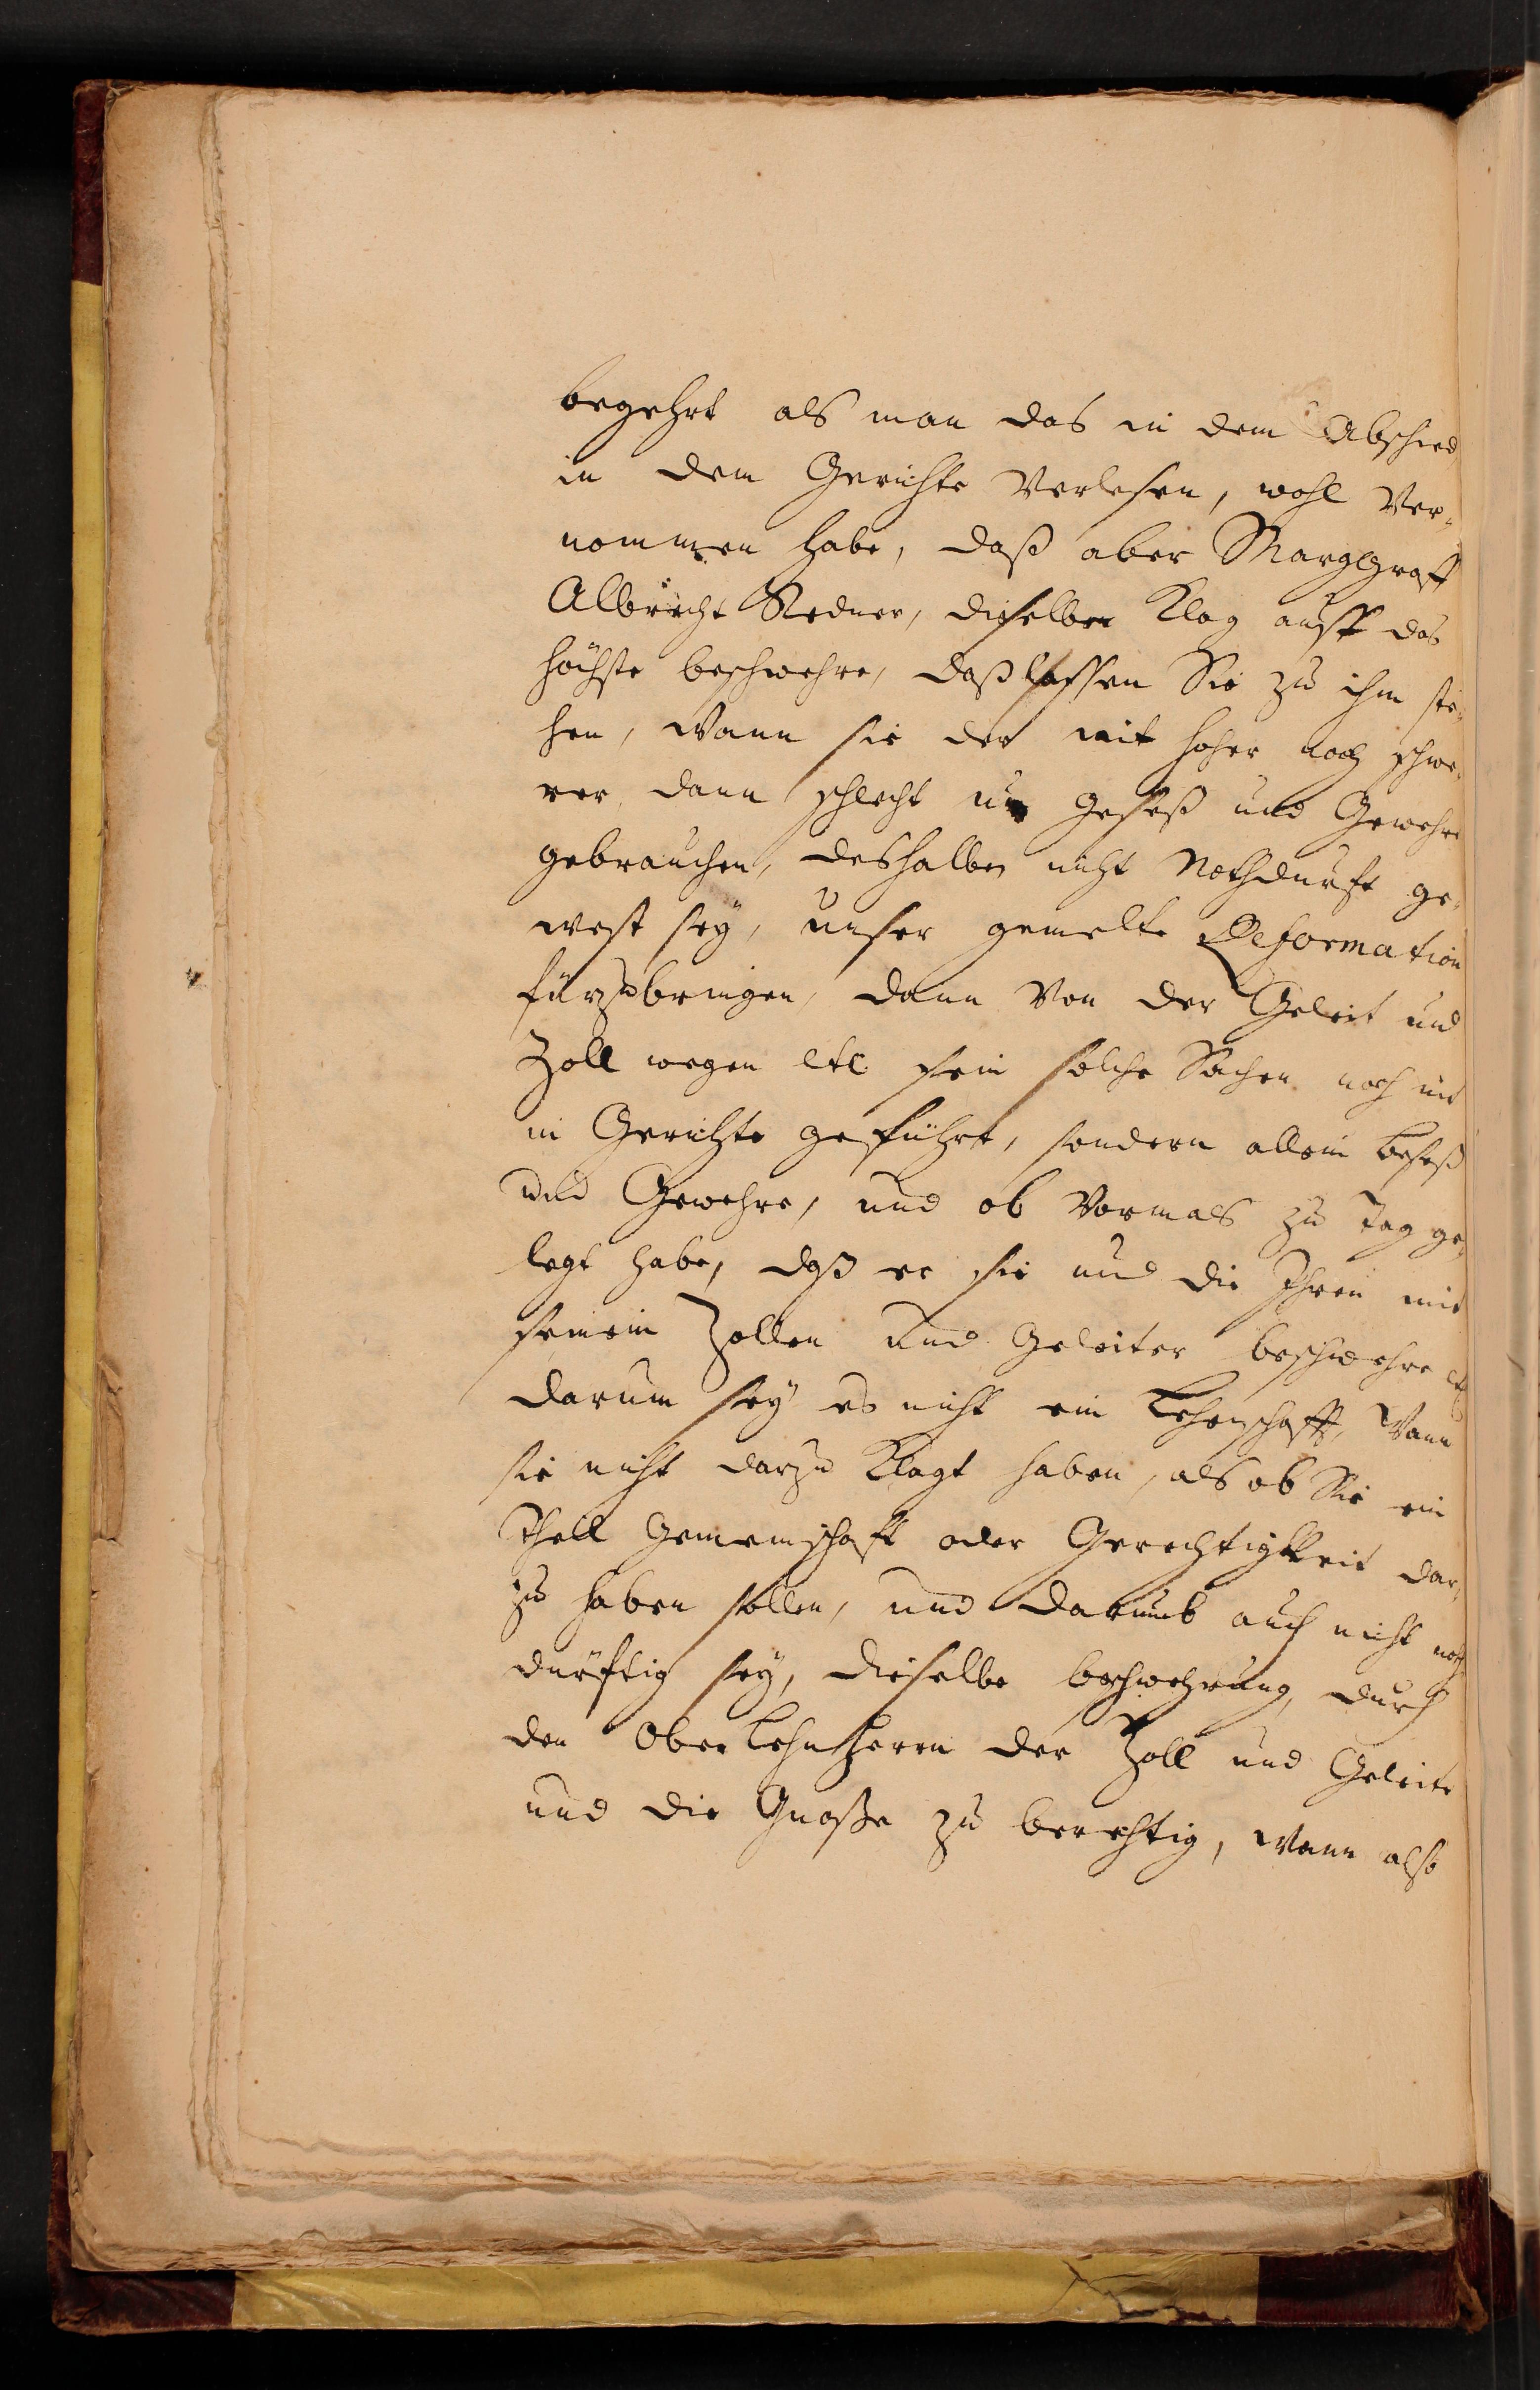 begehrt als man das in dem Abschied
in dem Gerichte Verlesen, wohl Ver¬
nommen habe, daß aber Marggraff
Albrecht Redner, dieselber Klag auff das
höchste beschwehre, daß laßen Sie zu ihm ste¬
hen, Wann sie der mit hoher noch schwe¬
rer, dann schlecht um geseß und Gewehre
gebrauchen, deshalben nicht Nothdurft ge¬
west sey, unser gemelte Reformation
fürzubringen, dann Von der Geleit und
Zoll wegen etc. sein solche Sachen noch nit
in Gerichte geführt, sondern allein beseß
und Gewehre, und ob Vormals zu Tag ge¬
legt habe, daß er sie und die Ihren mit
seinem Zollen und Geleiter beschwehre etc
darum sey es nicht ein Lehenschafft, Wann
sie nicht darzu Klagt haben, als ob Sie ein
Theil Gemeinschafft oder Gerechtigkeit dar¬
zu haben sollen, und darumb auch nicht noth
dürftig sey, dieselbe beschwehrung, durch
den Ober Lehnherrn der Zoll und Geleite
und die Gnoße zu berechtig, Wann also